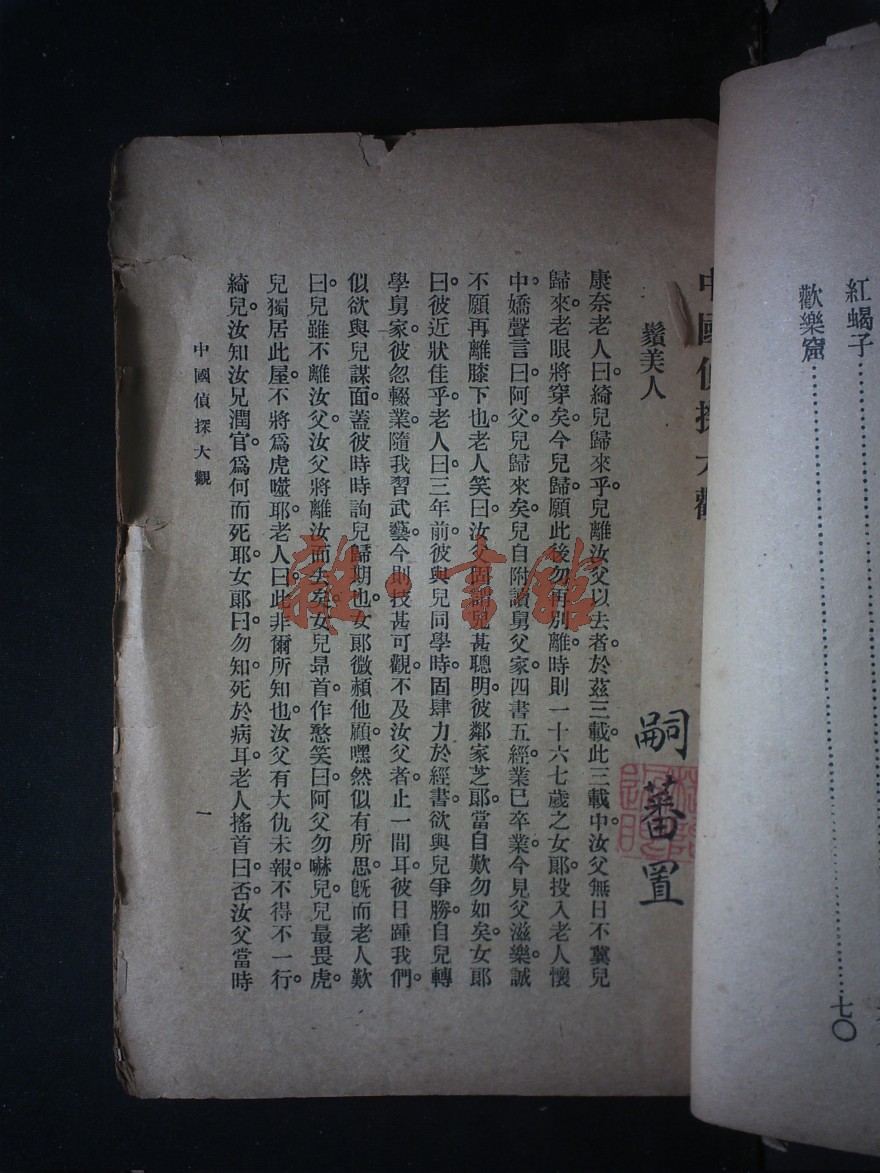 紅蝎子
歡樂窟……………七〇
中國偵探大觀
鬚美人
嗣蕃置
康奈老人曰。綺兒歸來乎。兒離汝父以去者。於茲三載。此三載中。汝父無日不冀兒
歸來。老眼將穿矣。今兒歸。願此後勿再別離。時則一十六七歲之女郎。投入老人懷
中。嬌聲言曰。阿父。兒歸來矣。兒自附讀舅父家。四書五經業已卒業。今見父滋樂。誠
不願再離膝下也。老人笑曰。汝父固謂兒甚聰明。彼鄰家芝郎。當自歎勿如矣。女郎
曰。彼近狀佳乎。老人曰。三年前。彼與兒同學時。固肆力於經書。欲與兒爭勝。自兒轉
學舅家。彼忽輟業。隨我習武藝。今則技甚可觀。不及汝父者。止一間耳。彼日踵我們。
似欲與兒謀面。蓋彼時時詢兒歸期也。女郎微頳他顧。嘿然似有所思。旣而老人歎
曰。兒雖不離汝父。汝父將離汝而去矣。女兒昂首作憨笑曰。阿父勿嚇兒。兒最畏虎。
兒獨居此屋。不將爲虎噬耶。老人曰。此非爾所知也。汝父有大仇未報。不得不一行。
綺兒。汝知汝兄潤官。爲何而死耶。女郎曰。勿知。死於病耳。老人搖首曰。否。汝父當時
中國偵探大觀
一
雜·書館